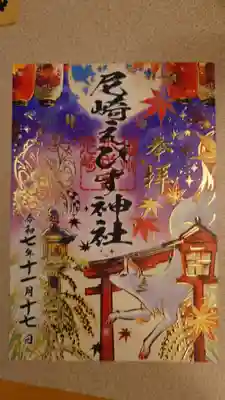 奉拝
尼崎えびす神社
令和七年十一月十七日